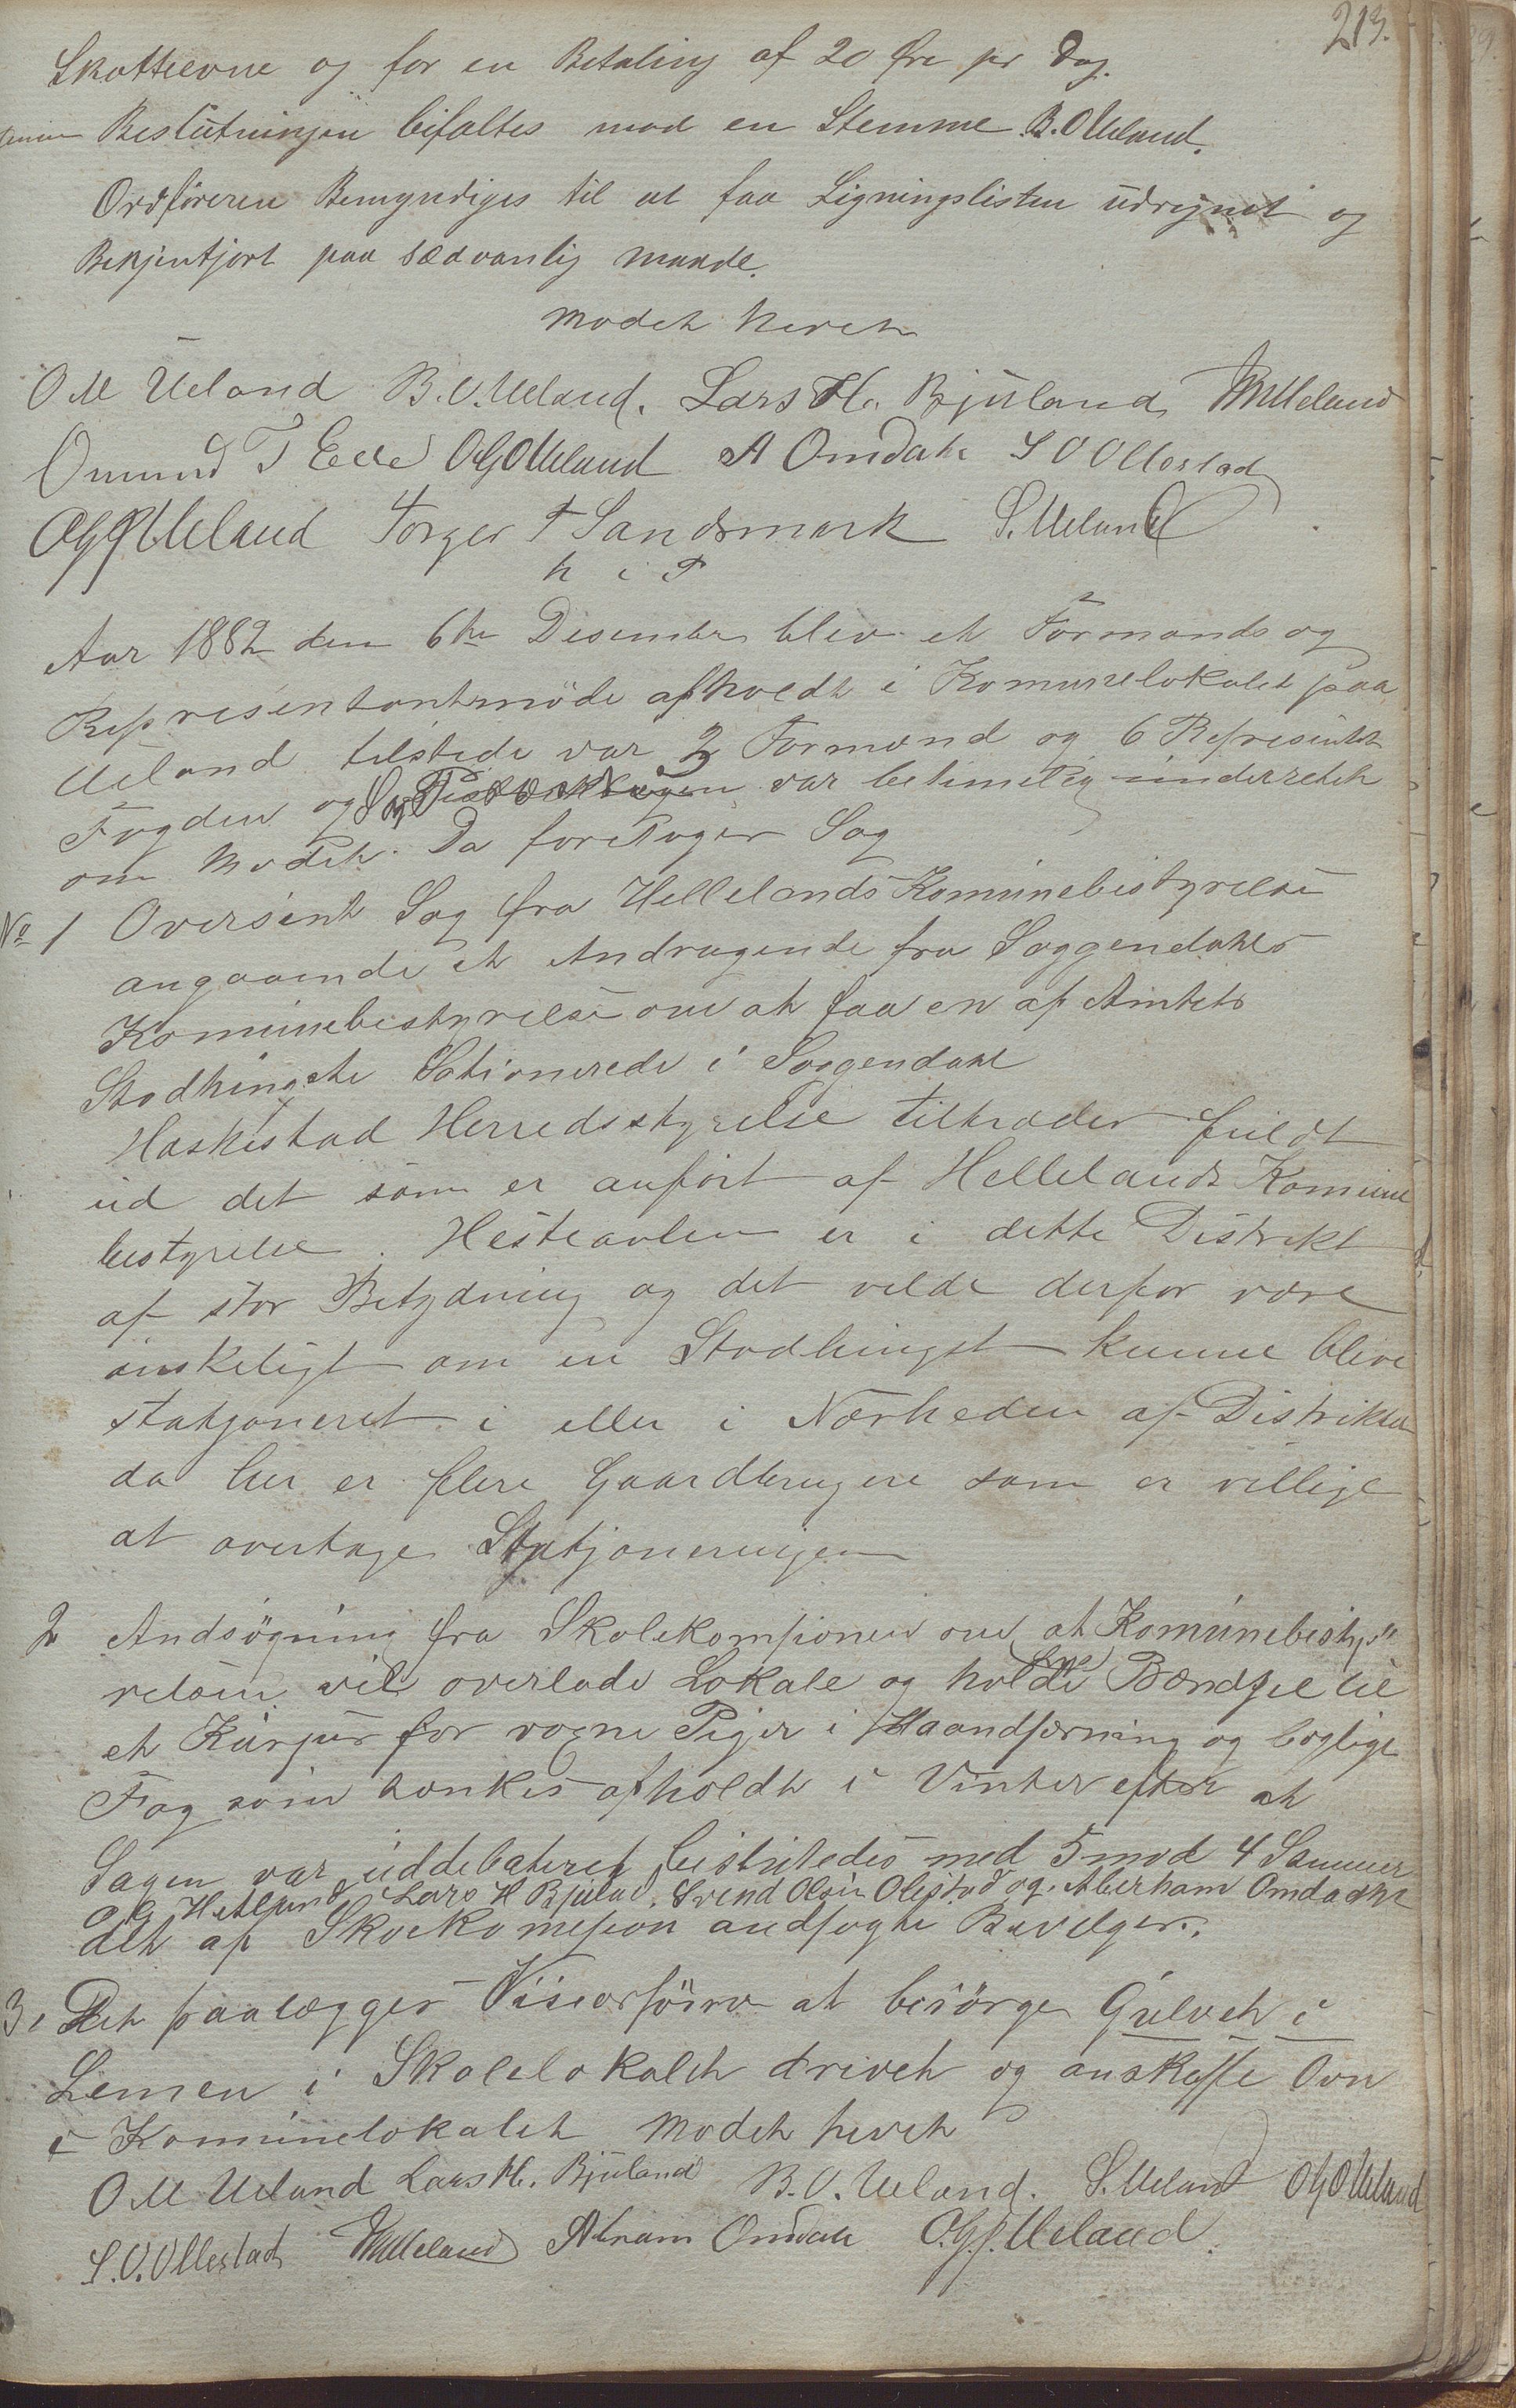 213.
Skatteevne og for en Betaling af 20 Øre pr Dag.
Beslutningen bifaltes mod en Stemme B. O Ueland.
Ordföreren Bemyndiges til at faa Ligningslisten udregnet og
Bekjentgjort paa sædvanlig maade.
Mødet hevet
O M Ueland B. O. Ueland. Lars H. Bjuland
Omund T Eeee OGOUeland A Omdahl S O Ollestad
OGPUeland Torger T Sandsmark S. Ueland
h i P
Aar 1882 den 6te Desember blev et Formands og
Representantmöde afholdt i Komunelokalet paa
Ueland tilstede var 3 Formænd og 6 Represent
Fogden og var betimelig underrettet
om Mødet. Da foretoges Sag
No 1 Oversent Sag fra Hellelands Komunebestyrelse
angaaende et Andragende fra Soggendahls
Komunebestyrelse om at faa en af Amtets
Stodhingste Stationerede i Soggendahl
Heskestad Herredsstyrelse tiltræder fuldt
ud det som er anført af Hellelands Komune
bestyrelse. Hesteavlen er i dette Distrikt
af stor Betydning og det vilde derfor være
ønskeligt om en Stodhingst kunne blive
statjoneret i eller i Nærheden af Distriktet
da her er flere Gaardbrugere som er villige
at overtage Statjoneringen
2 Andsøgning fra Skolekomsionen om at Komunebesty
relsen vil overlade Lokale og holde Brændsel til
et Kursus for voxne Piger i Haandgerning og boglige
Fag som tænkes afholdt i Vinter efter at
Sagen var uddebateret besluttedes med 5 mod 4 Stemmer
Lars H Bjulad. Svend Olsen Olestad og Aberham Omdahl
det af Skolekomesion andsøgte Bevilges.
3. Det paalægges Viseordförer at besørge Gulvet i
Lemen i Skolelokalet drivet og anskaffe Ovn
i Komunelokalet Mødet hevet
O M Ueland Lars H. Bjuland B. O. Ueland. S. Ueland OGOUeland
S. O. Ollestad Abram Omdal O.G.P. Ueland.